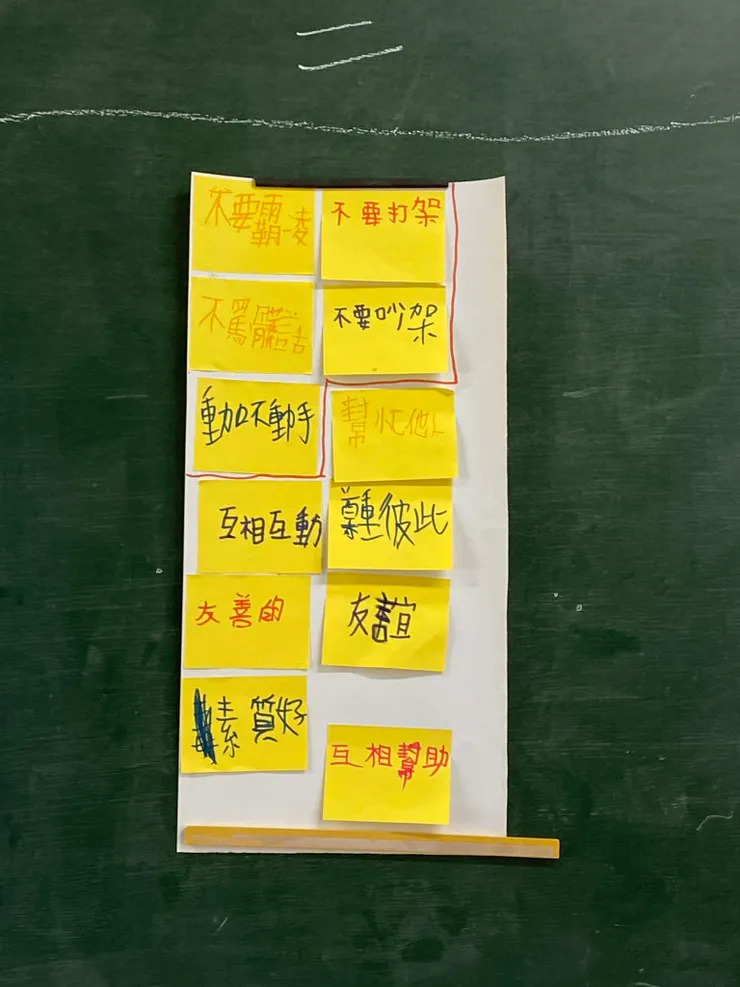 二
不要霸凌
不要打架
不罵髒話
不要吵架
動口不動手
幫忙他人
互相互動
尊重彼此
友善的
友誼
素質好
互相幫助